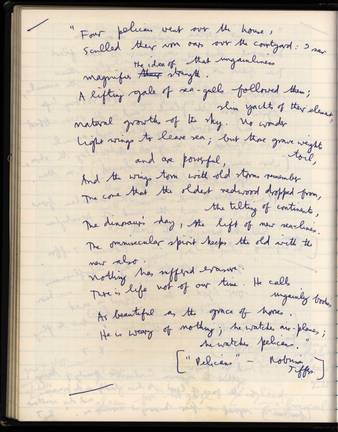 "Four pelicans went over the house,
Sculled their worn oars over the courtyard: I saw
the idea of that ungainliness
magnifies strength.
A lifting gale of sea-gulls followed them;
slim yachts of the element,
natural growths of the sky. No wonder
Light wings to leave sea; but those grave weights toil,
and are powerful,
And the wings torn with old storms remember
The cone that the oldest redwood dropped from,
the tilting of continents,
The dinosaur's day, the lift of new sea-lines.
The omniscular spirit keeps the old with the
new also.
Nothing has suffered erasure.
There is life not of our time. He calls
ungainly bodies
As beautiful as the grace of horses.
He is weary of nothing; he watches air-planes;
he watches pelicans."
["Pelicans" – Robinson
Jeffers]